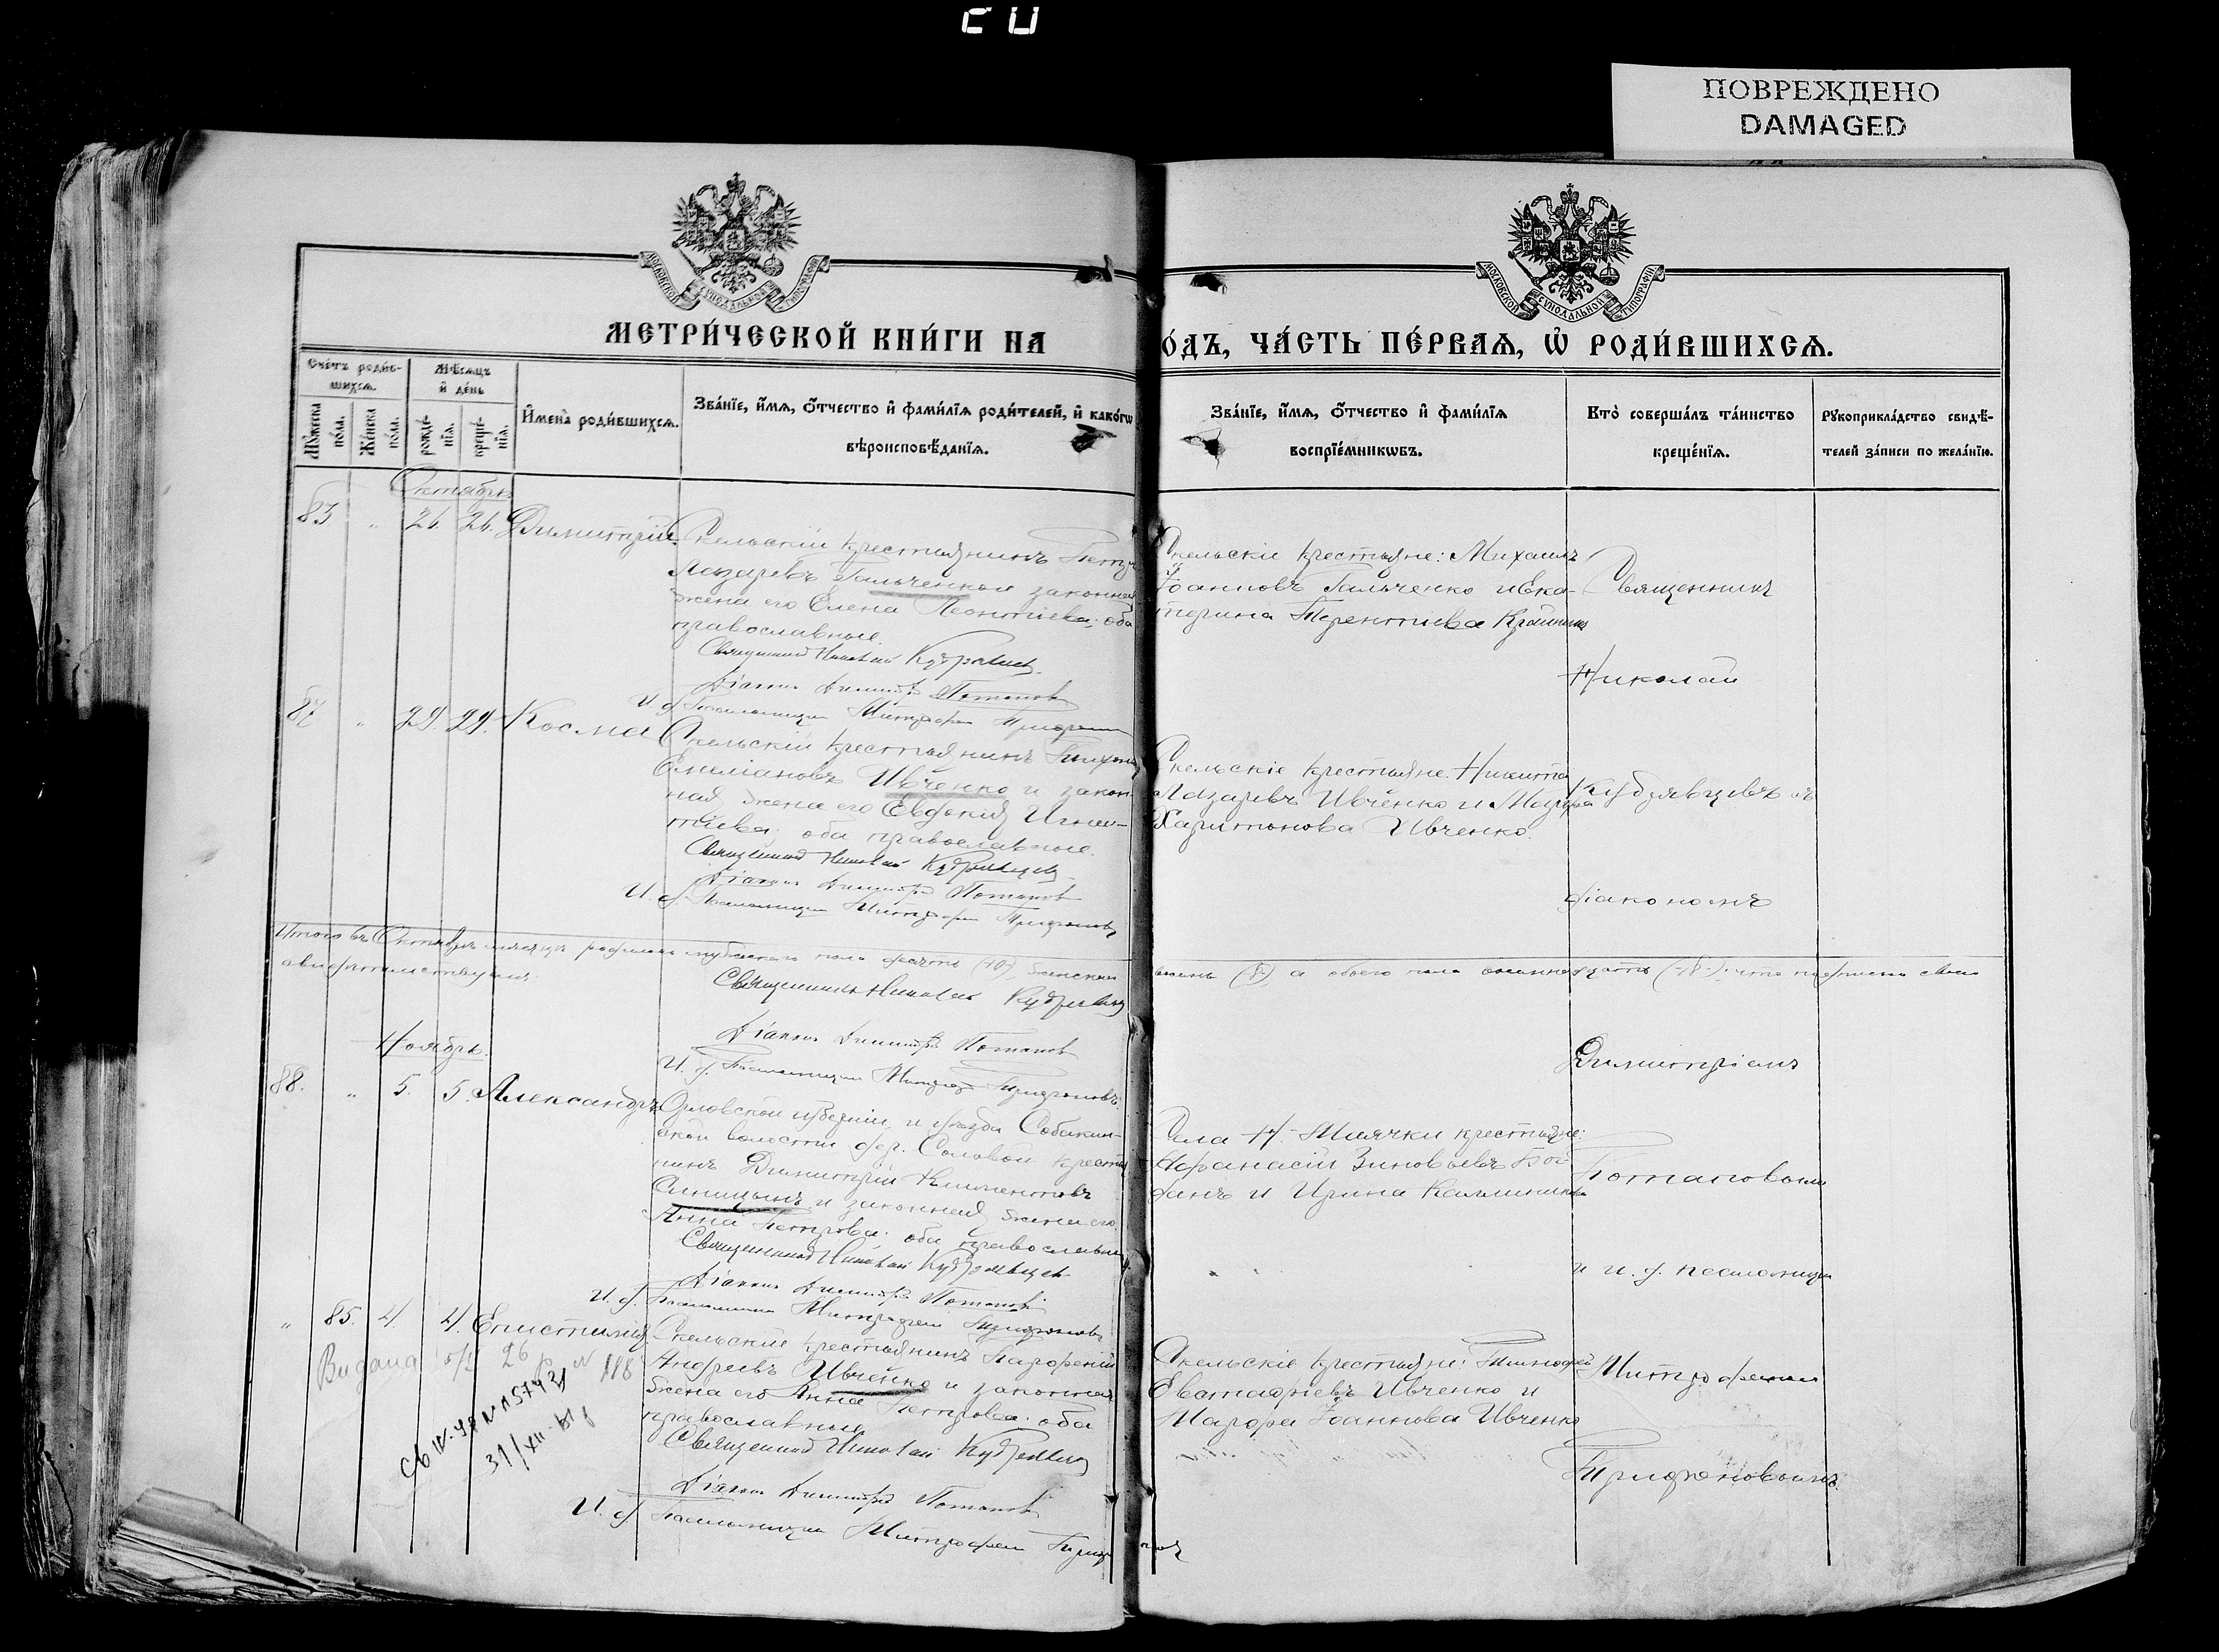 ПОВРЕЖДЕНО
DAMAGED
МОСКОВСКОЙ СѴНОДАЛЬНОЙ ТИПОГРАФІИ
МОСКОВСКОЙ СѴНОДАЛЬНОЙ ТИПОГРАФІИ
МЕТРИ́ЧЕСКОЙ КНИ́ГИ НА
О́ДЪ, ЧА́СТЬ ПЕ́РВАѦ, Ѡ҆ РОДИ́ВШИХСѦ.
Сче́тъ роди́в-
шихсѧ.
Мѣ́сѧцъ
и҆ де́нь
Мꙋ́жеска по́ла.
Же́нска по́ла.
рожде́-
нїѧ.
креще́-
нїѧ.
И҆мена̀ роди́вшихсѧ.
Зва́нїе, и҆́мѧ, ѻ҆́тчество и҆ фами́лїѧ роди́телей, и҆ како́гѡ
вѣроисповѣ́данїѧ.
Зва́нїе, и҆́мѧ, ѻ҆́тчество и҆ фами́лїѧ
воспрїе́мникѡвъ.
Кто̀ соверша́лъ та́инство
креще́нїѧ.
Рꙋкоприкла́дство свидѣ́-
телей за́писи по жела́нїю.
Октябрь
26. 26. Димитрій.
Скельскій крестьянинъ Петръ
Лазаревъ Гальченко и законная
жена его Елена Леонтіева; оба
православные
Священникъ Николай Кудрявцевъ
Діаконъ Димитрій Потаповъ
И. д. Псаломщика Митрофанъ Трифоновъ
Скельскіе крестьяне: Михаилъ
Іоанновъ Гальченко и Ека-
терина Терентіева
Священникъ
Николай
29. 29. Косма
Скельскій крестьянинъ Тихонъ
Емеліановъ Ивченко и закон-
ная жена его Евдокія Игна-
тіева; оба православные.
Священникъ Николай Кудрявцевъ
Діаконъ Димитрій Потаповъ
И. д. Псаломщика Митрофанъ Трифоновъ
Скельскіе крестьяне: Никита
Лазаревъ Ивченко и Марфа
Харитонова Ивченко.
Кудрявцевъ съ
діакономъ
Итого въ Октябрѣ мѣсяцѣ родилось мужескаго пола десять (10), женскаго
восемь (8), а обоего пола восемнадцать (18), что подписью своею
свидѣтельствуемъ.
Священникъ Николай Кудрявцевъ
Діаконъ Димитрій Потаповъ
И. д. Псаломщика Митрофанъ Трифоновъ.
Димитріемъ
Ноябрь.
88. " 5. 5. Александръ
Орловской губерніи и уѣзда Собакин-
ской волости дер. Соловой крестья-
нинъ Димитрій Климентовъ
Синицынъ и законная жена его
Анна Петрова; оба православные
Священникъ Николай Кудрявцевъ
Діаконъ Димитрій Потаповъ
И. д. Псаломщика Митрофанъ Трифоновъ
Села Н. Маячки крестьяне:
Афанасій Зиновьевъ
и Ирина Калиникова
Потаповымъ
и и. д. псаломщика
" 85. 4. 4. Епистимія
Скельскій крестьянинъ Парфеній
Андреевъ Ивченко и законная
жена его Анна Петрова; оба
православные
Священникъ Николай Кудрявцевъ
Діаконъ Димитрій Потаповъ
И. д. Псаломщика Митрофанъ Трифоновъ
Скельскіе крестьяне: Тимофей
Евстафіевъ Ивченко и
Марфа Іоаннова Ивченко
Митрофаномъ
Трифоновымъ.
Видана
26
118
31/XII-61